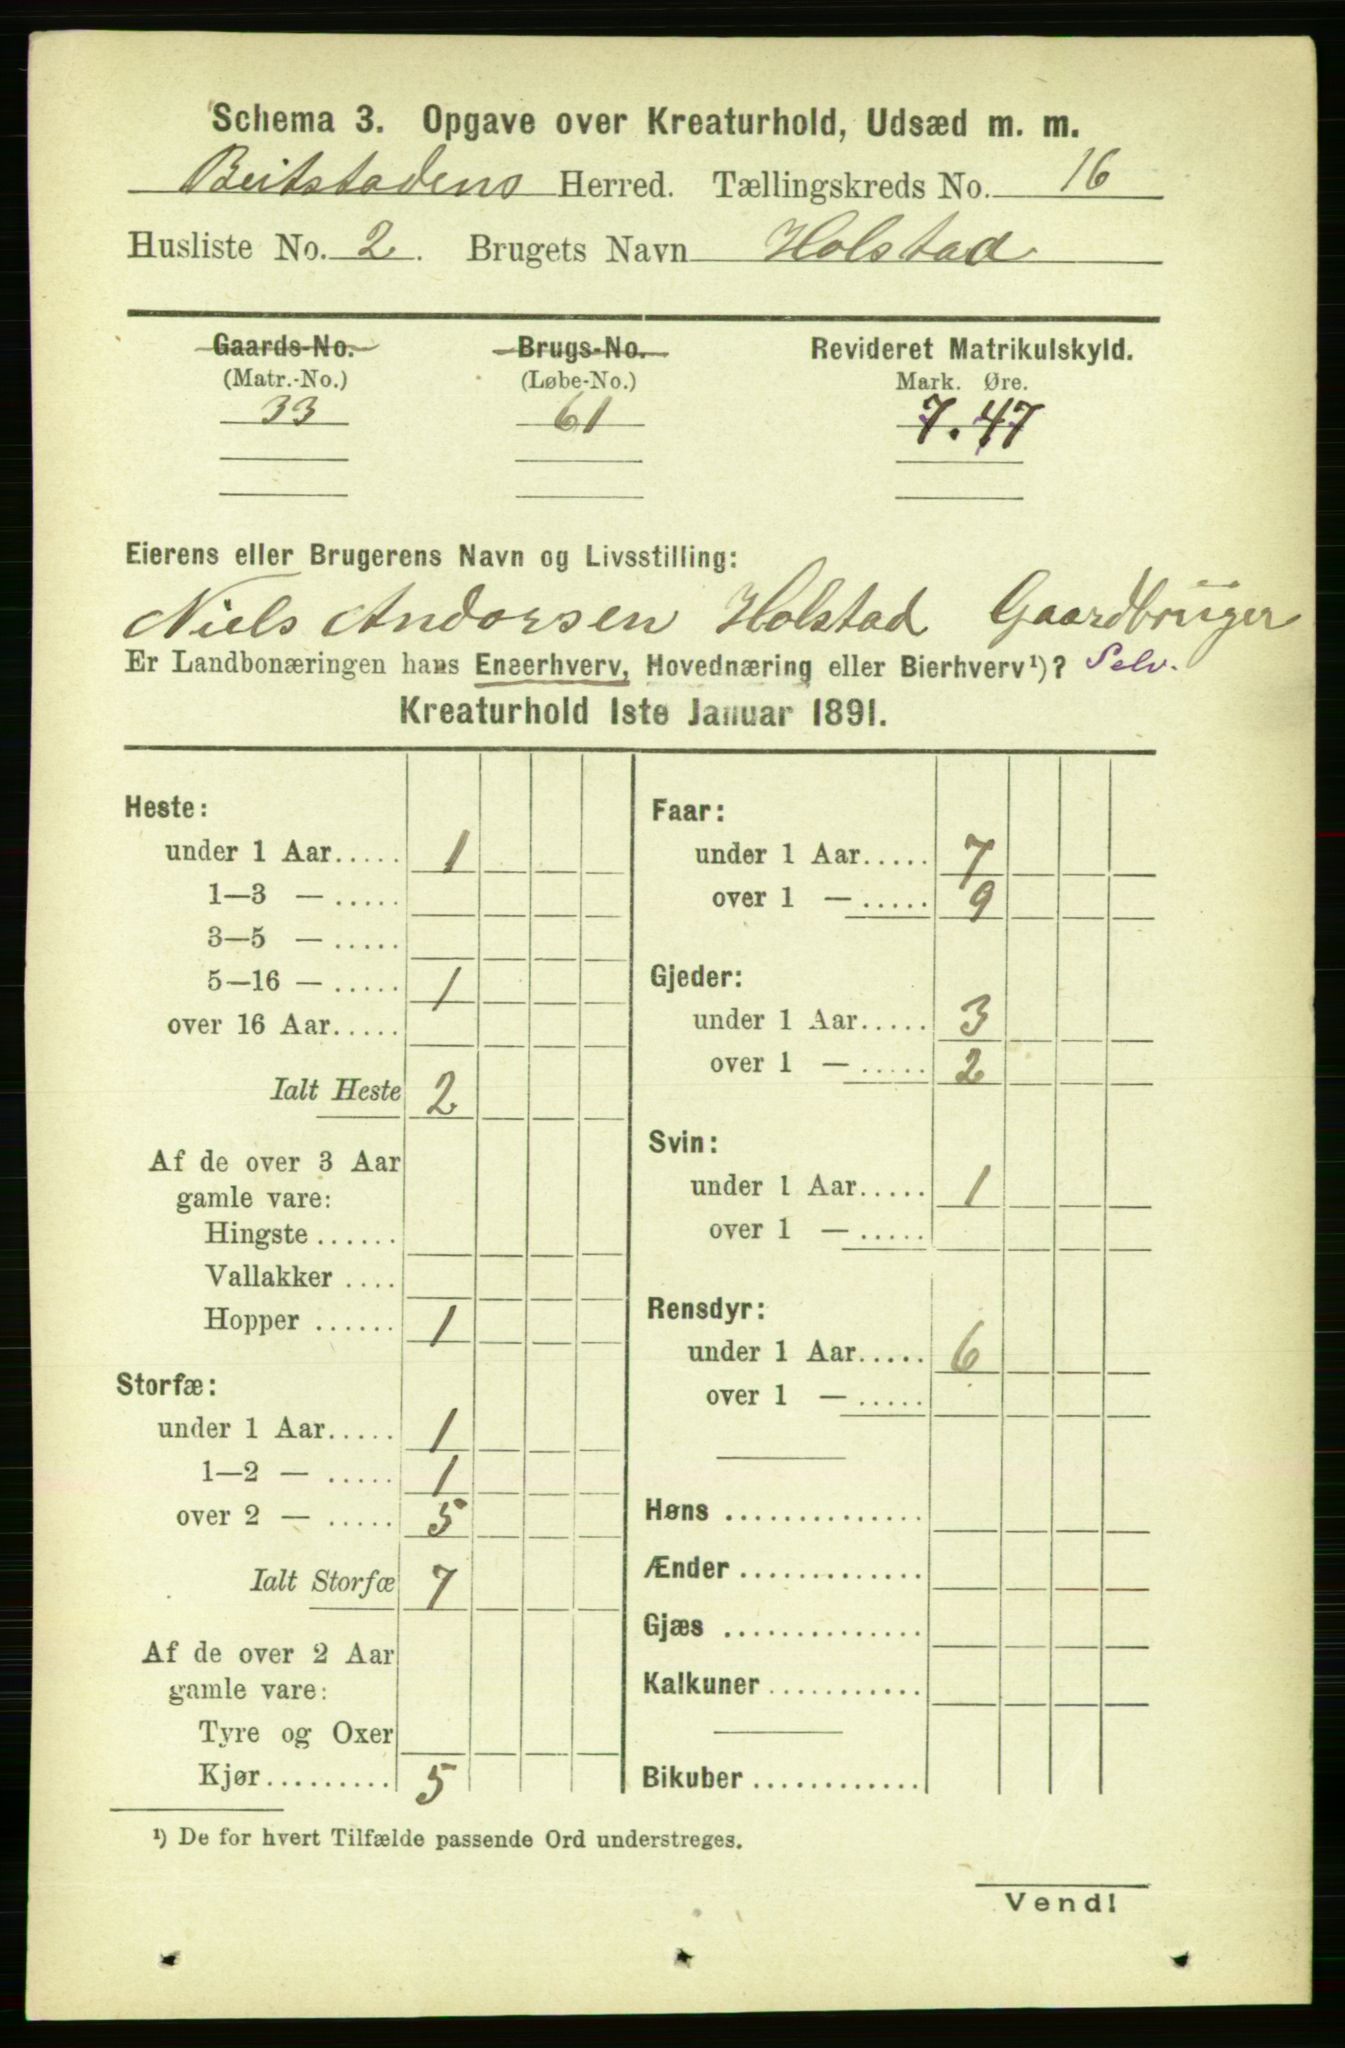 Schema 3. Opgave over Kreaturhold, Udsæd m. m.
Beitstadens Herred. Tællingskreds No. 16
Husliste No. 2. Brugets Navn Holstad
Gaards-No. Brugs-No. Revideret Matrikulskyld.
(Matr.-No.) (Løbe-No.) Mark. Øre.
33 61 7.47
Eierens eller Brugerens Navn og Livsstilling:
Niels Andorsen Holstad Gaardbruger
Er Landbonæringen hans Eneerhverv, Hovednæring eller Bierhverv¹)? Selv.
Kreaturhold 1ste Januar 1891.
Heste:
under 1 Aar..... 1
1—3 — .....
3—5 — .....
5—16 — ..... 1
over 16 Aar.....
Ialt Heste 2
Af de over 3 Aar
gamle vare:
Hingste ......
Vallakker ....
Hopper ...... 1
Storfæ:
under 1 Aar..... 1
1—2 — ..... 1
over 2 — ..... 5
Ialt Storfæ 7
Af de over 2 Aar
gamle vare:
Tyre og Oxer
Kjør......... 5
Faar:
under 1 Aar..... 7
over 1 — ..... 9
Gjeder:
under 1 Aar..... 3
over 1 — ..... 2
Svin:
under 1 Aar..... 1
over 1 — .....
Rensdyr:
under 1 Aar..... 6
over 1 — .....
Høns ..............
Ænder .............
Gjæs ..............
Kalkuner ...........
Bikuber ............
¹) De for hvert Tilfælde passende Ord understreges.
Vend!